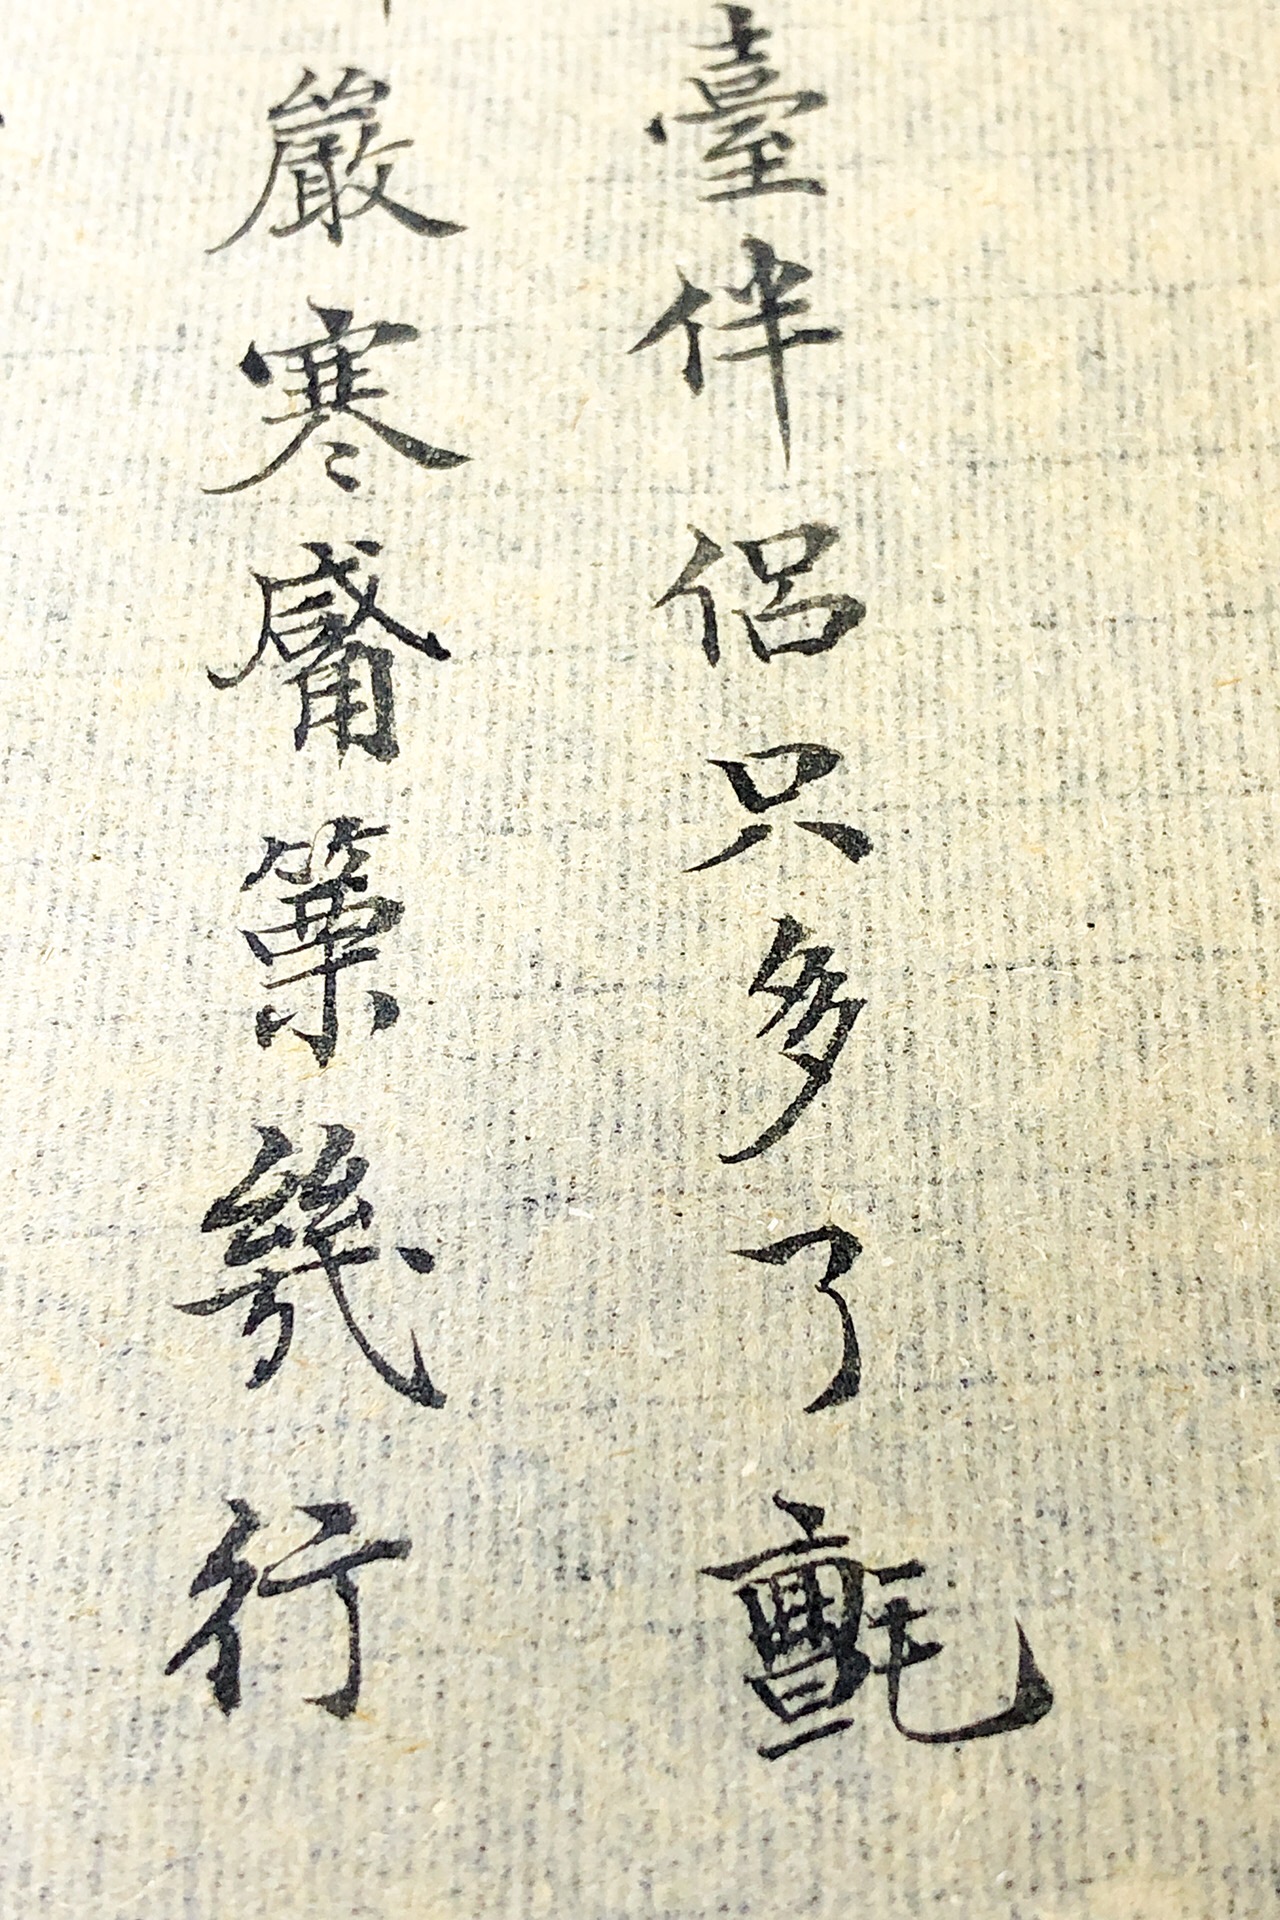 臺伴侶只多了氈
嚴寒觱篥幾行